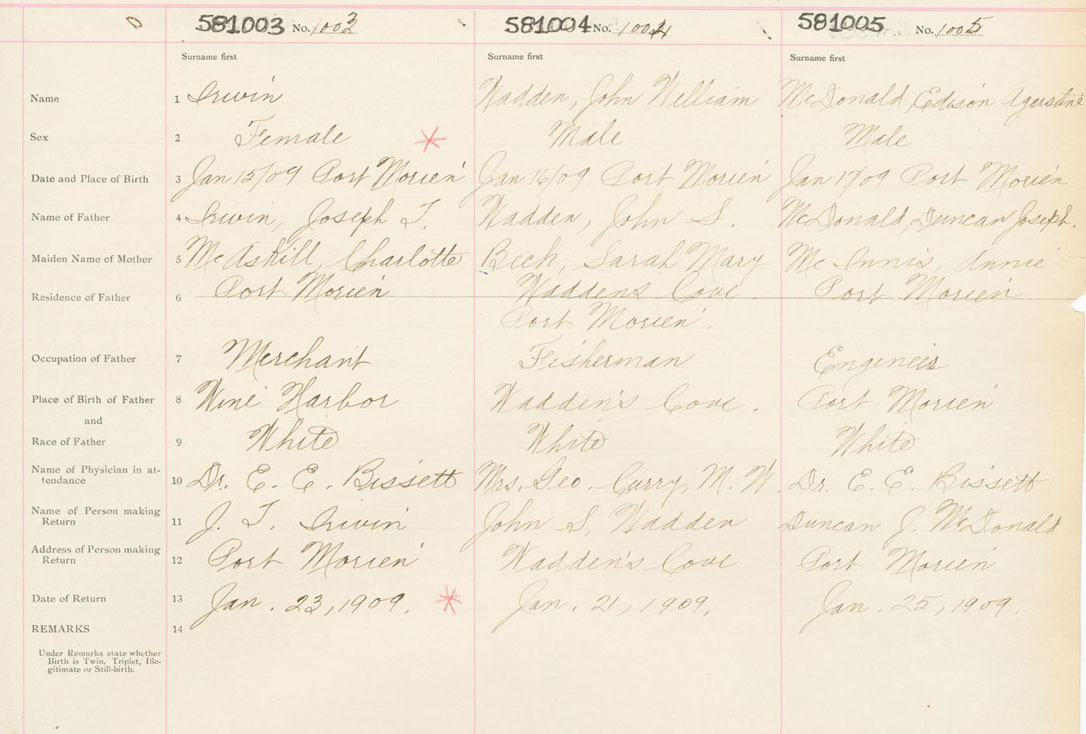 581003 No. 1003 581004 No. 1004 581005 No. 1005
Surname first Surname first Surname first
Name 1 Irwin Wadden, John William McDonald, Edison Agustine
Sex 2 Female Male Male
Date and Place of Birth 3 Jan 15/09 Port Morien Jan 16/09 Port Morien Jan 17/09 Port Morien
Name of Father 4 Irwin, Joseph T. Wadden, John S. McDonald, Duncan Joseph.
Maiden Name of Mother 5 McAskill, Charlotte Beck, Sarah Mary McInnis, Annie
Residence of Father 6 Port Morien Waddens Cove Port Morien
Port Morien.
Occupation of Father 7 Merchant Fisherman Engineer
Place of Birth of Father 8 Wine Harbor Wadden's Cove. Port Morien
and
Race of Father 9 White White White
Name of Physician in at-
tendance 10 Dr. E. E. Bissett Mrs. Geo. Curry, M. W. Dr. E. E. Bissett
Name of Person making
Return 11 J. T. Irwin John S. Wadden Duncan J. McDonald
Address of Person making
Return 12 Port Morien Wadden's Cove Port Morien
Date of Return 13 Jan. 23, 1909. Jan. 21, 1909. Jan. 25, 1909.
REMARKS 14
Under Remarks state whether
Birth is Twin, Triplet, Ille-
gitimate or Still-birth.